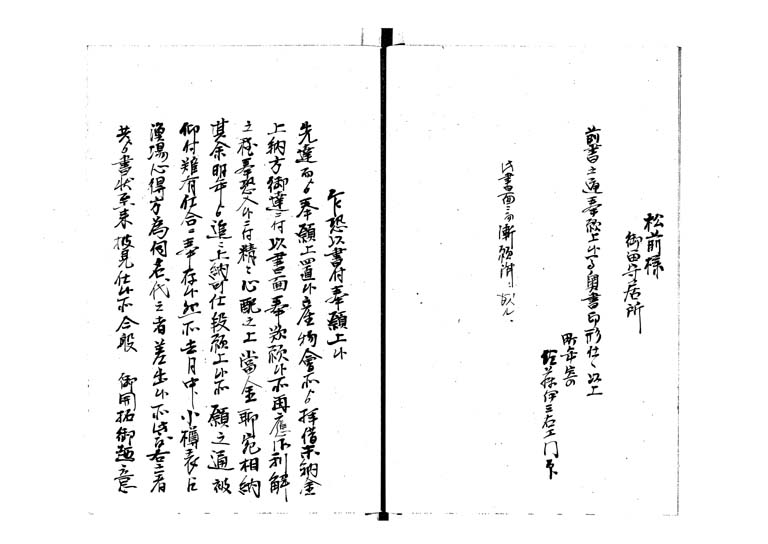 松前様
御留守居所
前書之通奉願上候ニ付奥書印形仕候以上
年寄
佐藤伊三右エ門 印
此書面ニ而漸願済ニ成ル
乍恐以書付奉願上候
先達而ゟ奉願上置候産物會所ゟ拝借未納金
上納方御達ニ付以書面奉歎願候所再應御利解
之段奉恐入候ニ付精々心配之上當金聊宛相納
其余明年ゟ追々上納可仕段願上候所願之通被
仰付難有仕合ニ奉存候然所去月中小樽表ゟ
漁場心得方為伺名代之者差出候所此者
共ゟ書状到来披見仕候所今般 御開拓御趣意